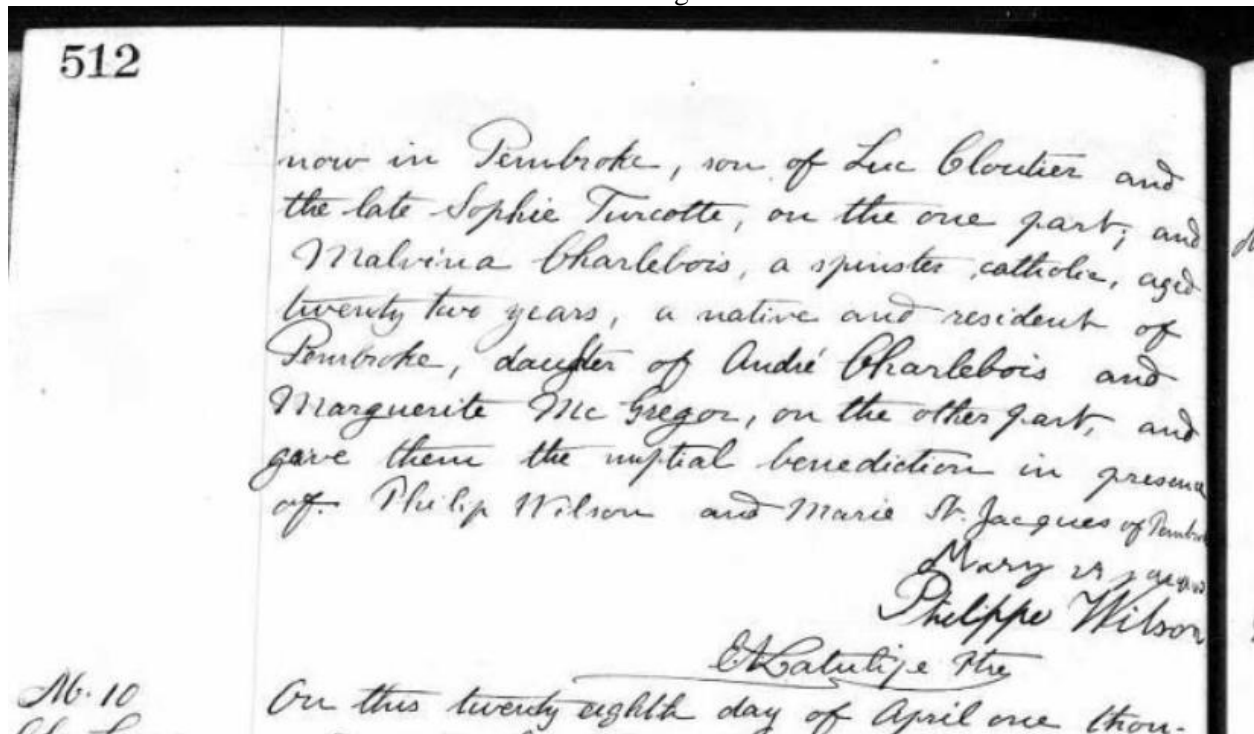 512
now in Pembroke, son of Luc Cloutier and
the late Sophie Turcotte, on the one part; and
Malvina Charlebois, a spinster, catholic, aged
twenty two years, a native and resident of
Pembroke, daughter of André Charlebois and
Marguerite Mc Gregor, on the other part, and
gave them the nuptial benediction in presence
of Philip Wilson and Marie St. Jacques of
Mary
Philippe Wilson
Ptre
M. 10
On this twenty eighth day of April one thou-